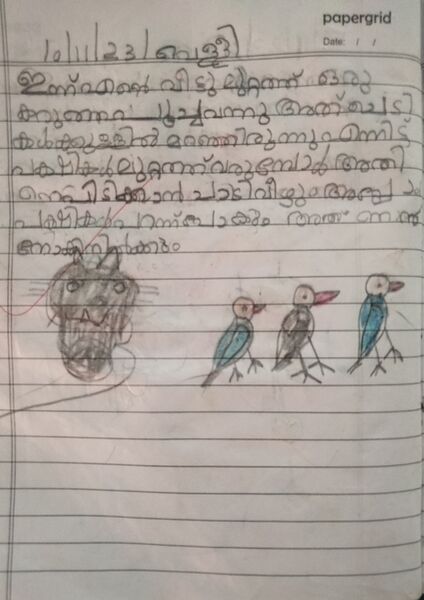 papergrid
Date: / /
10/11/23/വെള്ളി
ഇന്ന് എന്റെ വീട്ടുമുറ്റത്ത് ഒരു
കറുത്ത പൂച്ചവന്നു അത് ചെടി
കൾക്കുള്ളിൽ മറഞ്ഞിരുന്നു എന്നിട്ട്
പക്ഷികൾ മുറ്റത്ത് വരുമ്പോൾ അതി
നെപിടിക്കാൻ ചാടിവീഴും അപ്പോ
പക്ഷികൾ പറന്ന്പോകും അത്
നോക്കിനിൽക്കും